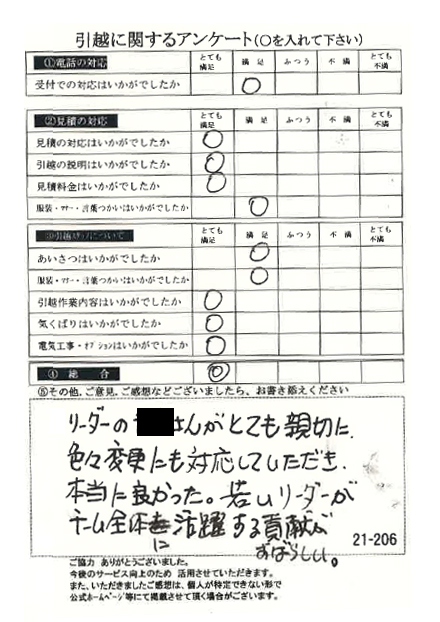 引越に関するアンケート(〇を入れて下さい)
①電話の対応 とても満足 満足 ふつう 不満 とても不満
受付での対応はいかがでしたか 〇
②見積の対応 とても満足 満足 ふつう 不満 とても不満
見積の対応はいかがでしたか 〇
引越の説明はいかがでしたか 〇
見積料金はいかがでしたか 〇
服装・マナー・言葉つかいはいかがでしたか 〇
③引越スタッフについて とても満足 満足 ふつう 不満 とても不満
あいさつはいかがでしたか 〇
服装・マナー・言葉つかいはいかがでしたか 〇
引越作業内容はいかがでしたか 〇
気くばりはいかがでしたか 〇
電気工事・オプションはいかがでしたか 〇
④総合 〇
⑤その他、ご意見、ご感想などございましたら、お書き添えください
リーダーの さんがとても親切に、
色々変更にも対応していただき、
本当に良かった。若いリーダーが
チーム全体に活躍する貢献が
すばらしい。
21-206
ご協力 ありがとうございました。
今後のサービス向上のため 活用させていただきます。
また、いただきましたご感想は、個人が特定できない形で
公式ホームページ等にて掲載させて頂く場合がございます。